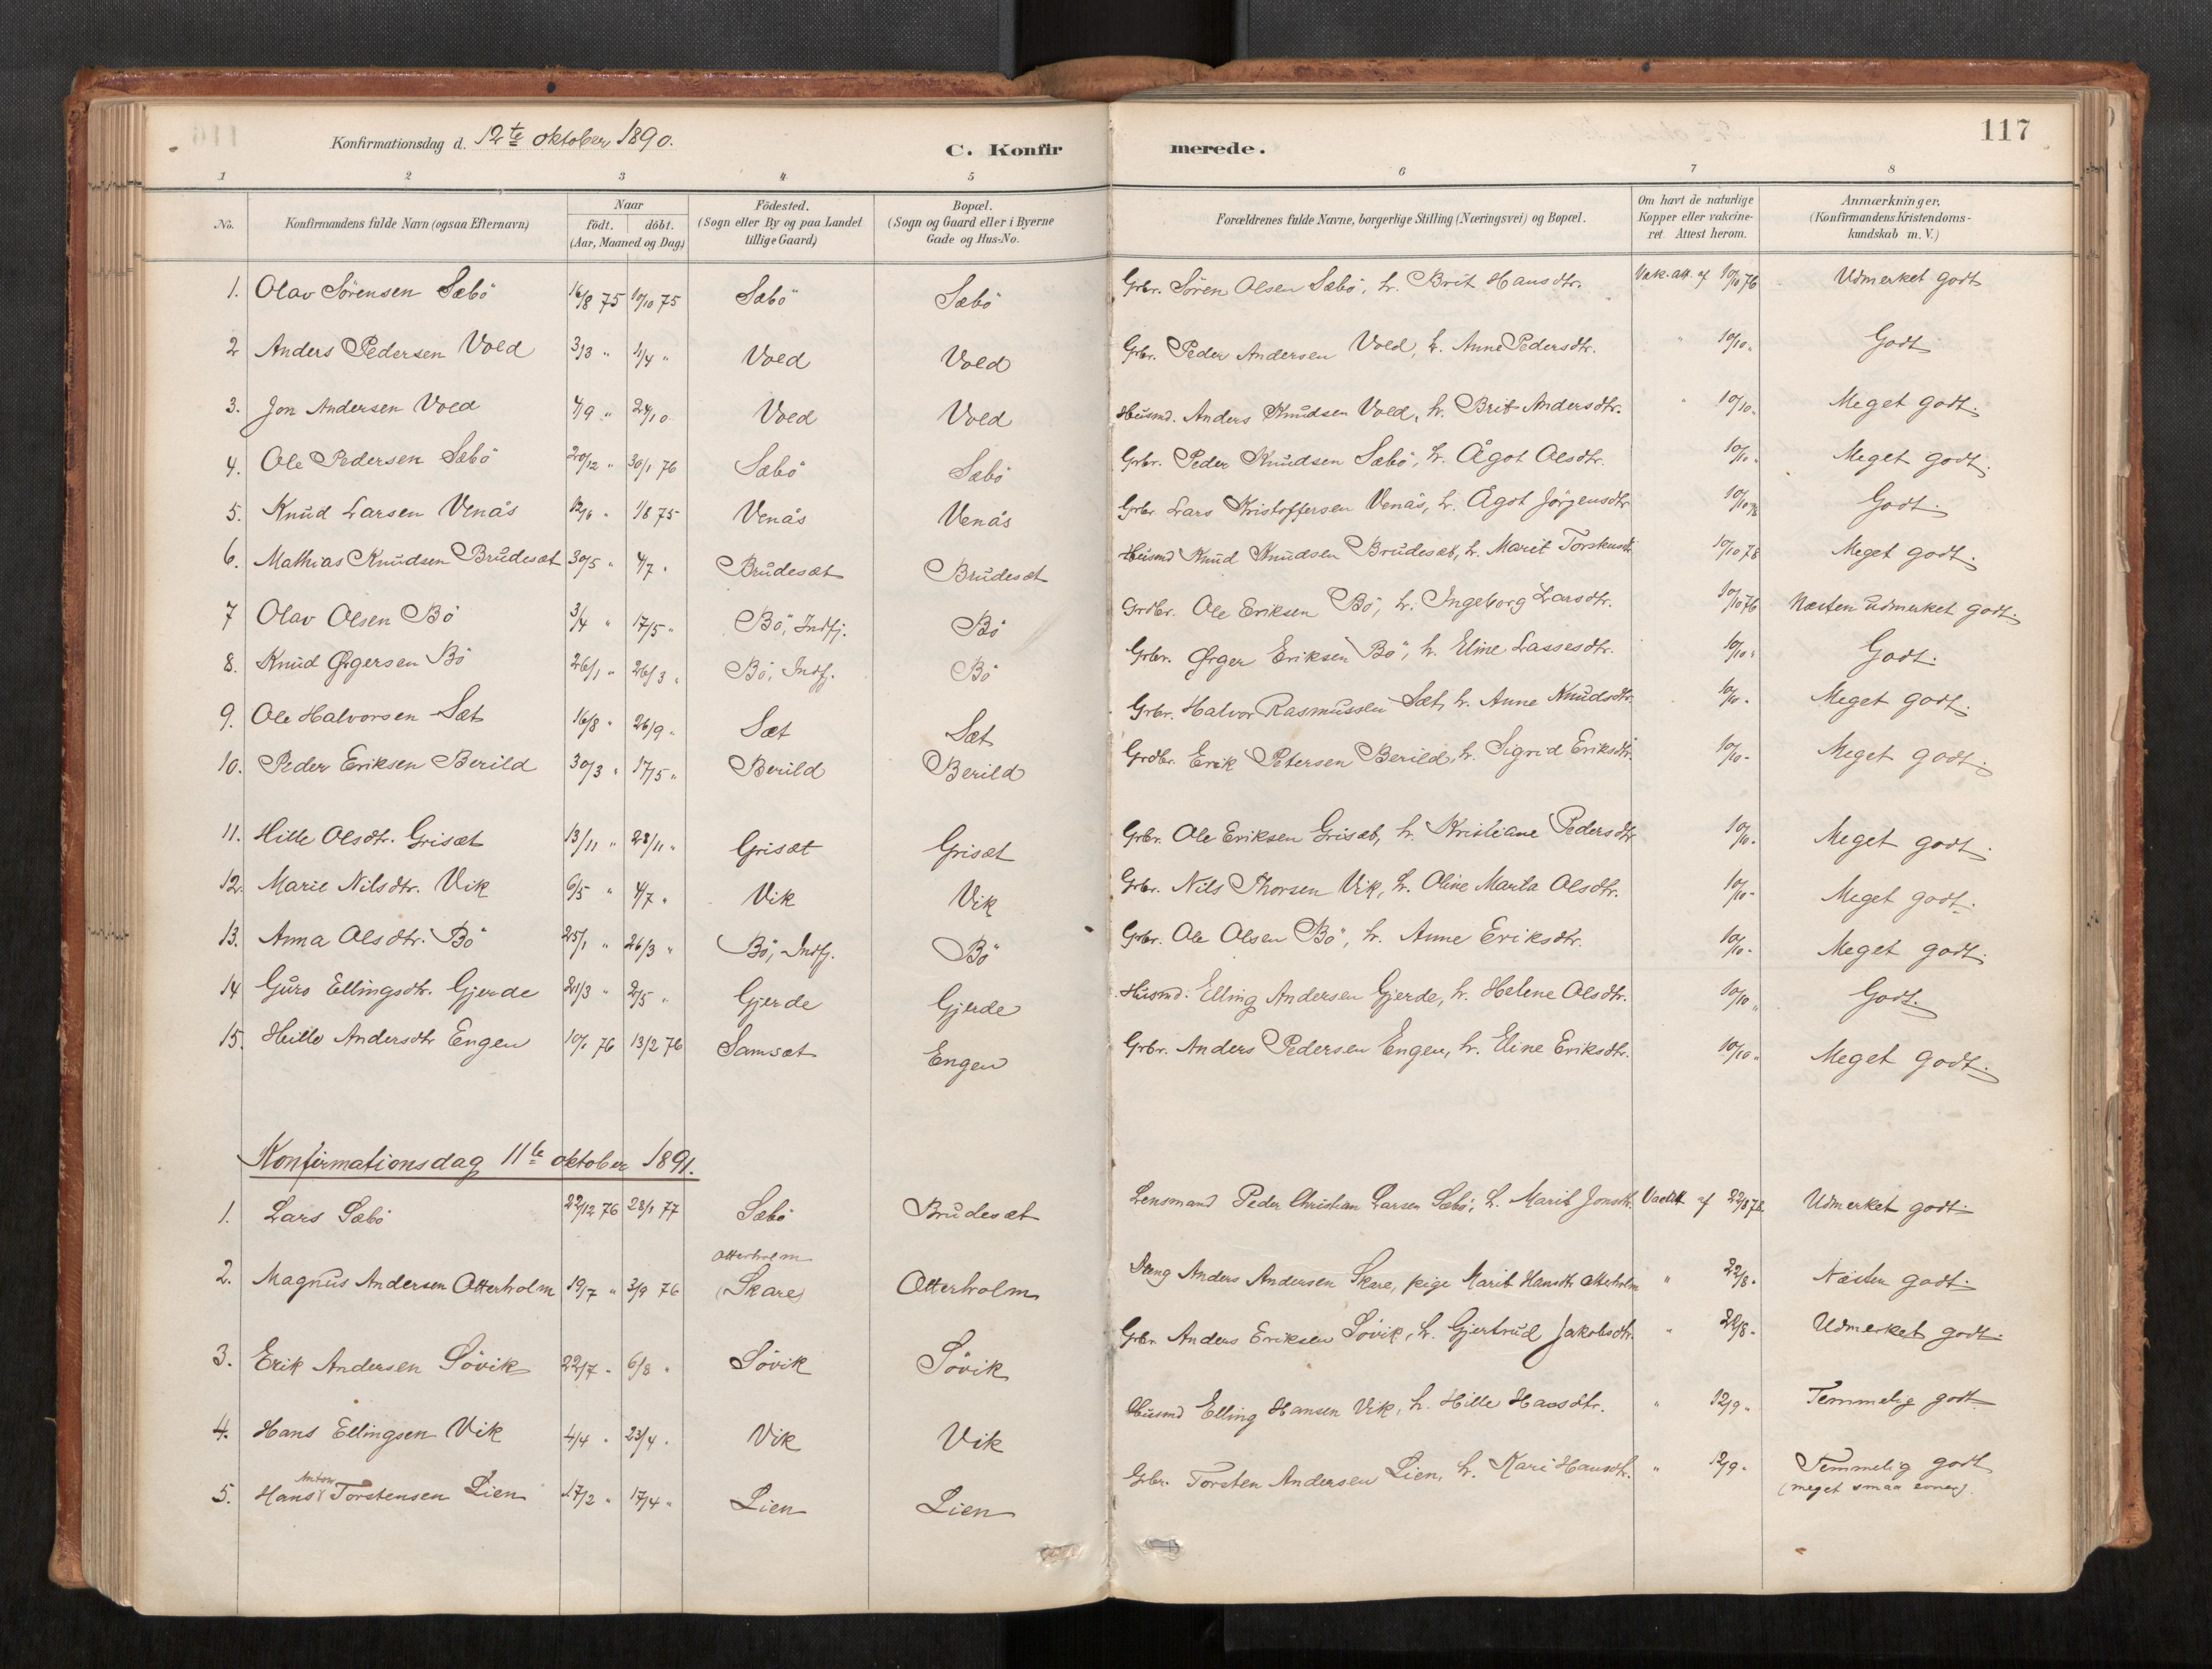 117
Konfirmationsdag d. 12te oktober 1890.
C. Konfirmerede.
1 2 3 4 5 6 7 8
No. Konfirmandens fulde Navn (ogsaa Efternavn) Naar født. døbt. (Aar, Maaned og Dag) Fødested. (Sogn eller By og paa Landet tillige Gaard) Bopæl. (Sogn og Gaard eller i Byerne Gade og Hus-No. Forældrenes fulde Navne, borgerlige Stilling (Næringsvei) og Bopæl. Om havt de naturlige Kopper eller vakcineret. Attest herom. Anmærkninger, (Konfirmandens Kristendomskundskab m. V.)
1. Olav Sörensen Sæbö 16/8 75 10/10 75 Sæbö Sæbö Grbr. Sören Olsen Sæbö, h. Brit Hansdtr. Vak. att. af 10/10 76 Udmerket godt
2 Anders Pedersen Vold 3/3 " 11/4 " Vold Vold Grbr. Peder Andersen Vold, h. Anne Pedersdtr. " 10/10 " Godt
3. Jon Andersen Vold 4/9 " 24/10 Vold Vold Husmd. Anders Knudsen Vold, h. Brit Andersdtr. " 10/10 " Meget godt.
4. Ole Pedersen Sæbö 20/12 " 30/1 76 Sæbö Sæbö Grbr. Peder Knudsen Sæbö, h. Ågot Olsdtr. 10/10 " Meget godt.
5. Knud Larsen Venås " 1/8 75 Venås Venås Grbr. Lars Kristoffersen Venås, h. Ågot Jörgensdtr 10/10 78 Godt.
6. Mathias Knudsen Brudesæt 30/5 " 4/7 " Brudesæt Brudesæt Husmd Knud Knudsen Brudesæt, h. Marit Torstensdt. 10/10 78 Meget godt.
7 Olav Olsen Bö 3/4 " 17/5 " Bö, Indfj. Bö Grdbr. Ole Eriksen Bö, h. Ingeborg Larsdtr. 10/10 76 Næsten udmerket godt.
8. Knud Ørgersen Bö 26/1 " 26/3 " Bö, Indfj. Bö Grbr. Ørger Eriksen Bö, h. Eline Lassesdtr. 10/10 " Godt.
9. Ole Halvorsen Sæt 16/8 " 26/9 " Sæt Sæt Grbr. Halvor Rasmussen Sæt, h. Anne Knudsdtr. 10/10 " Meget godt.
10. Peder Eriksen Berild 30/3 " 17/5 " Berild Berild Grdbr. Erik Petersen Berild, h. Sigrid Eriksdtr. 10/10 " Meget godt.
11. Hille Olsdtr. Grisæt 13/11 " 28/11 " Grisæt Grisæt Grbr. Ole Eriksen Grisæt, h. Kristiane Pedersdtr 10/10 " Meget godt.
12. Marie Nilsdtr. Vik 6/5 " 4/7 " Vik Vik Grbr. Nils Thorsen Vik, h. Oline Marta Olsdtr. 10/10 " Meget godt.
13. Anna Olsdtr. Bö 25/1 " 26/3 " Bö, Indfj. Bö Grbr. Ole Olsen Bö, h. Anne Eriksdtr. 10/10 " Meget godt.
14 Guro Ellingsdtr. Gjerde 21/3 " 2/5 " Gjerde Gjerde Husmd. Elling Andersen Gjerde, h. Helene Olsdtr. 10/10 " Godt.
15. Hille Andersdtr Engen 10/1 76 13/2 76 Samsæt Engen Grbr. Anders Pedersen Engen, h. Eline Eriksdtr. 10/10 " Meget godt.
Konfirmationsdag 11te oktober 1891.
1. Lars Sæbö 22/12 76 28/1 77 Sæbö Brudesæt Lensmand Peder Christian Larsen Sæbö, h. Marit Jonsdtr. af 22/8 78. Udmerket godt.
2. Magnus Andersen Otterholm 19/7 " 3/9 76 Otterholm (Skare) Otterholm Dreng Anders Andersen Skare, pige Marit Hansdtr Otterholm " 22/8 " Næsten godt.
3. Erik Andersen Sövik 22/7 " 6/8 " Sövik Sövik Grbr. Anders Eriksen Sövik, h. Gjertrud Jakobsdtr. " 22/8 " Udmerket godt.
4. Hans Ellingsen Vik 4/4 " 23/4 " Vik Vik Husmd Elling Hansen Vik, h. Hille Hansdtr. " 12/9 " Temmelig godt
5. Hans Anton Torstensen Lien 17/2 " 17/4 " Lien Lien Grbr. Torsten Andersen Lien, h. Kari Hansdtr. " 12/9 " Temmelig godt
(meget smaa evner).